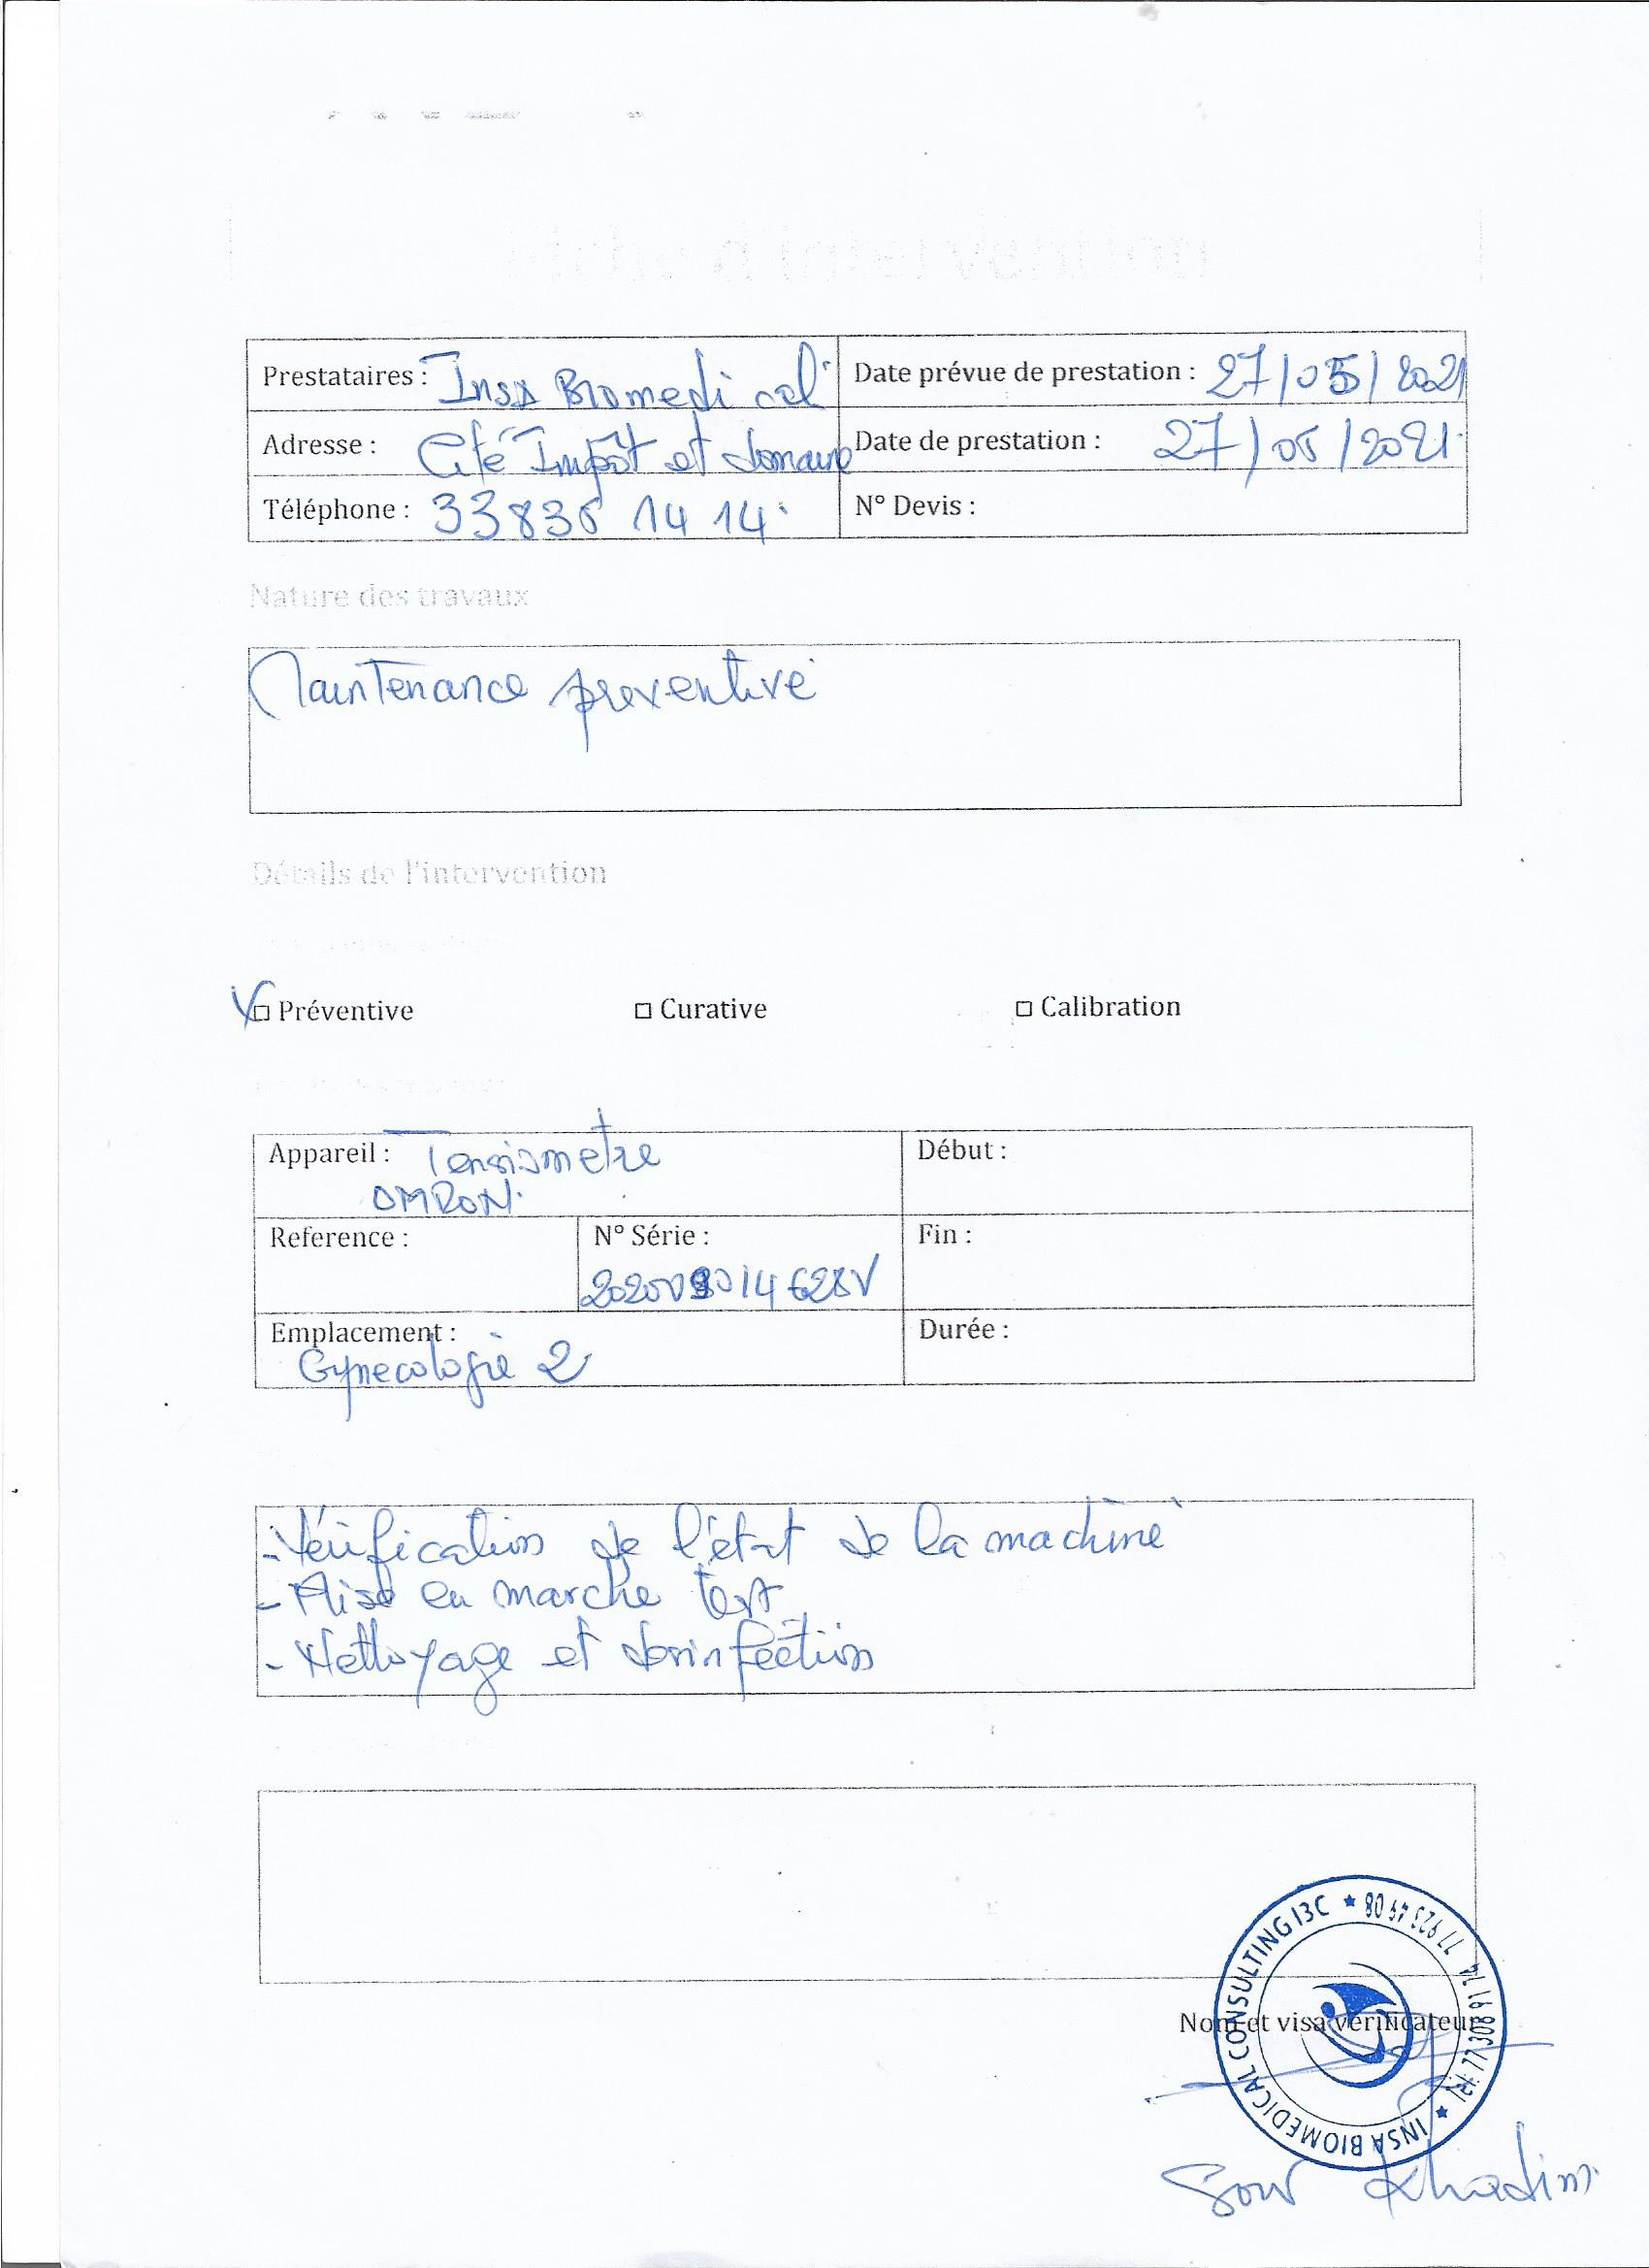 Fiche d'intervention
Prestataires : Insa Biomedical
Date prévue de prestation : 27/05/2021
Adresse : Cité Impôt et domaine
Date de prestation : 27/05/2021
Téléphone : 33836 14 14
N° Devis :
Nature des travaux
Maintenance preventive
Détails de l'intervention
Préventive
Curative
Calibration
Appareil : Tensiometre
OMRON
Début :
Reference :
N° Série :
Fin :
Emplacement :
Gynecologie 2
Durée :
- Vérification de l'état de la machine
- Mise en marche test
- Nettoyage et desinfection
Nom et visa vérificateur
INSA BIOMEDICAL CONSULTING I3C ★ 77 925 49 08
★ Tél: 77 308 91 74
Sow Khadim